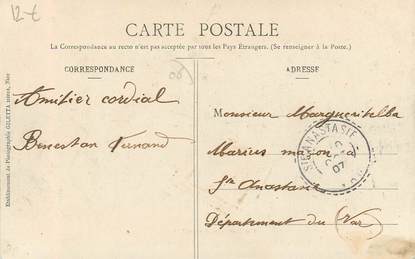 12-€
CARTE POSTALE
La Correspondance au recto n'est pas acceptée par tous les Pays Étrangers. (Se renseigner à la Poste.)
CORRESPONDANCE
Amitier cordial
Benestan Fernand
(06)
ADRESSE
Monsieur Margueritelba
Marius maçon
Ste Anastasie
Département du Var
STE ANASTASIE
07
Etablissement de Photographie GILETTA frères, Nice